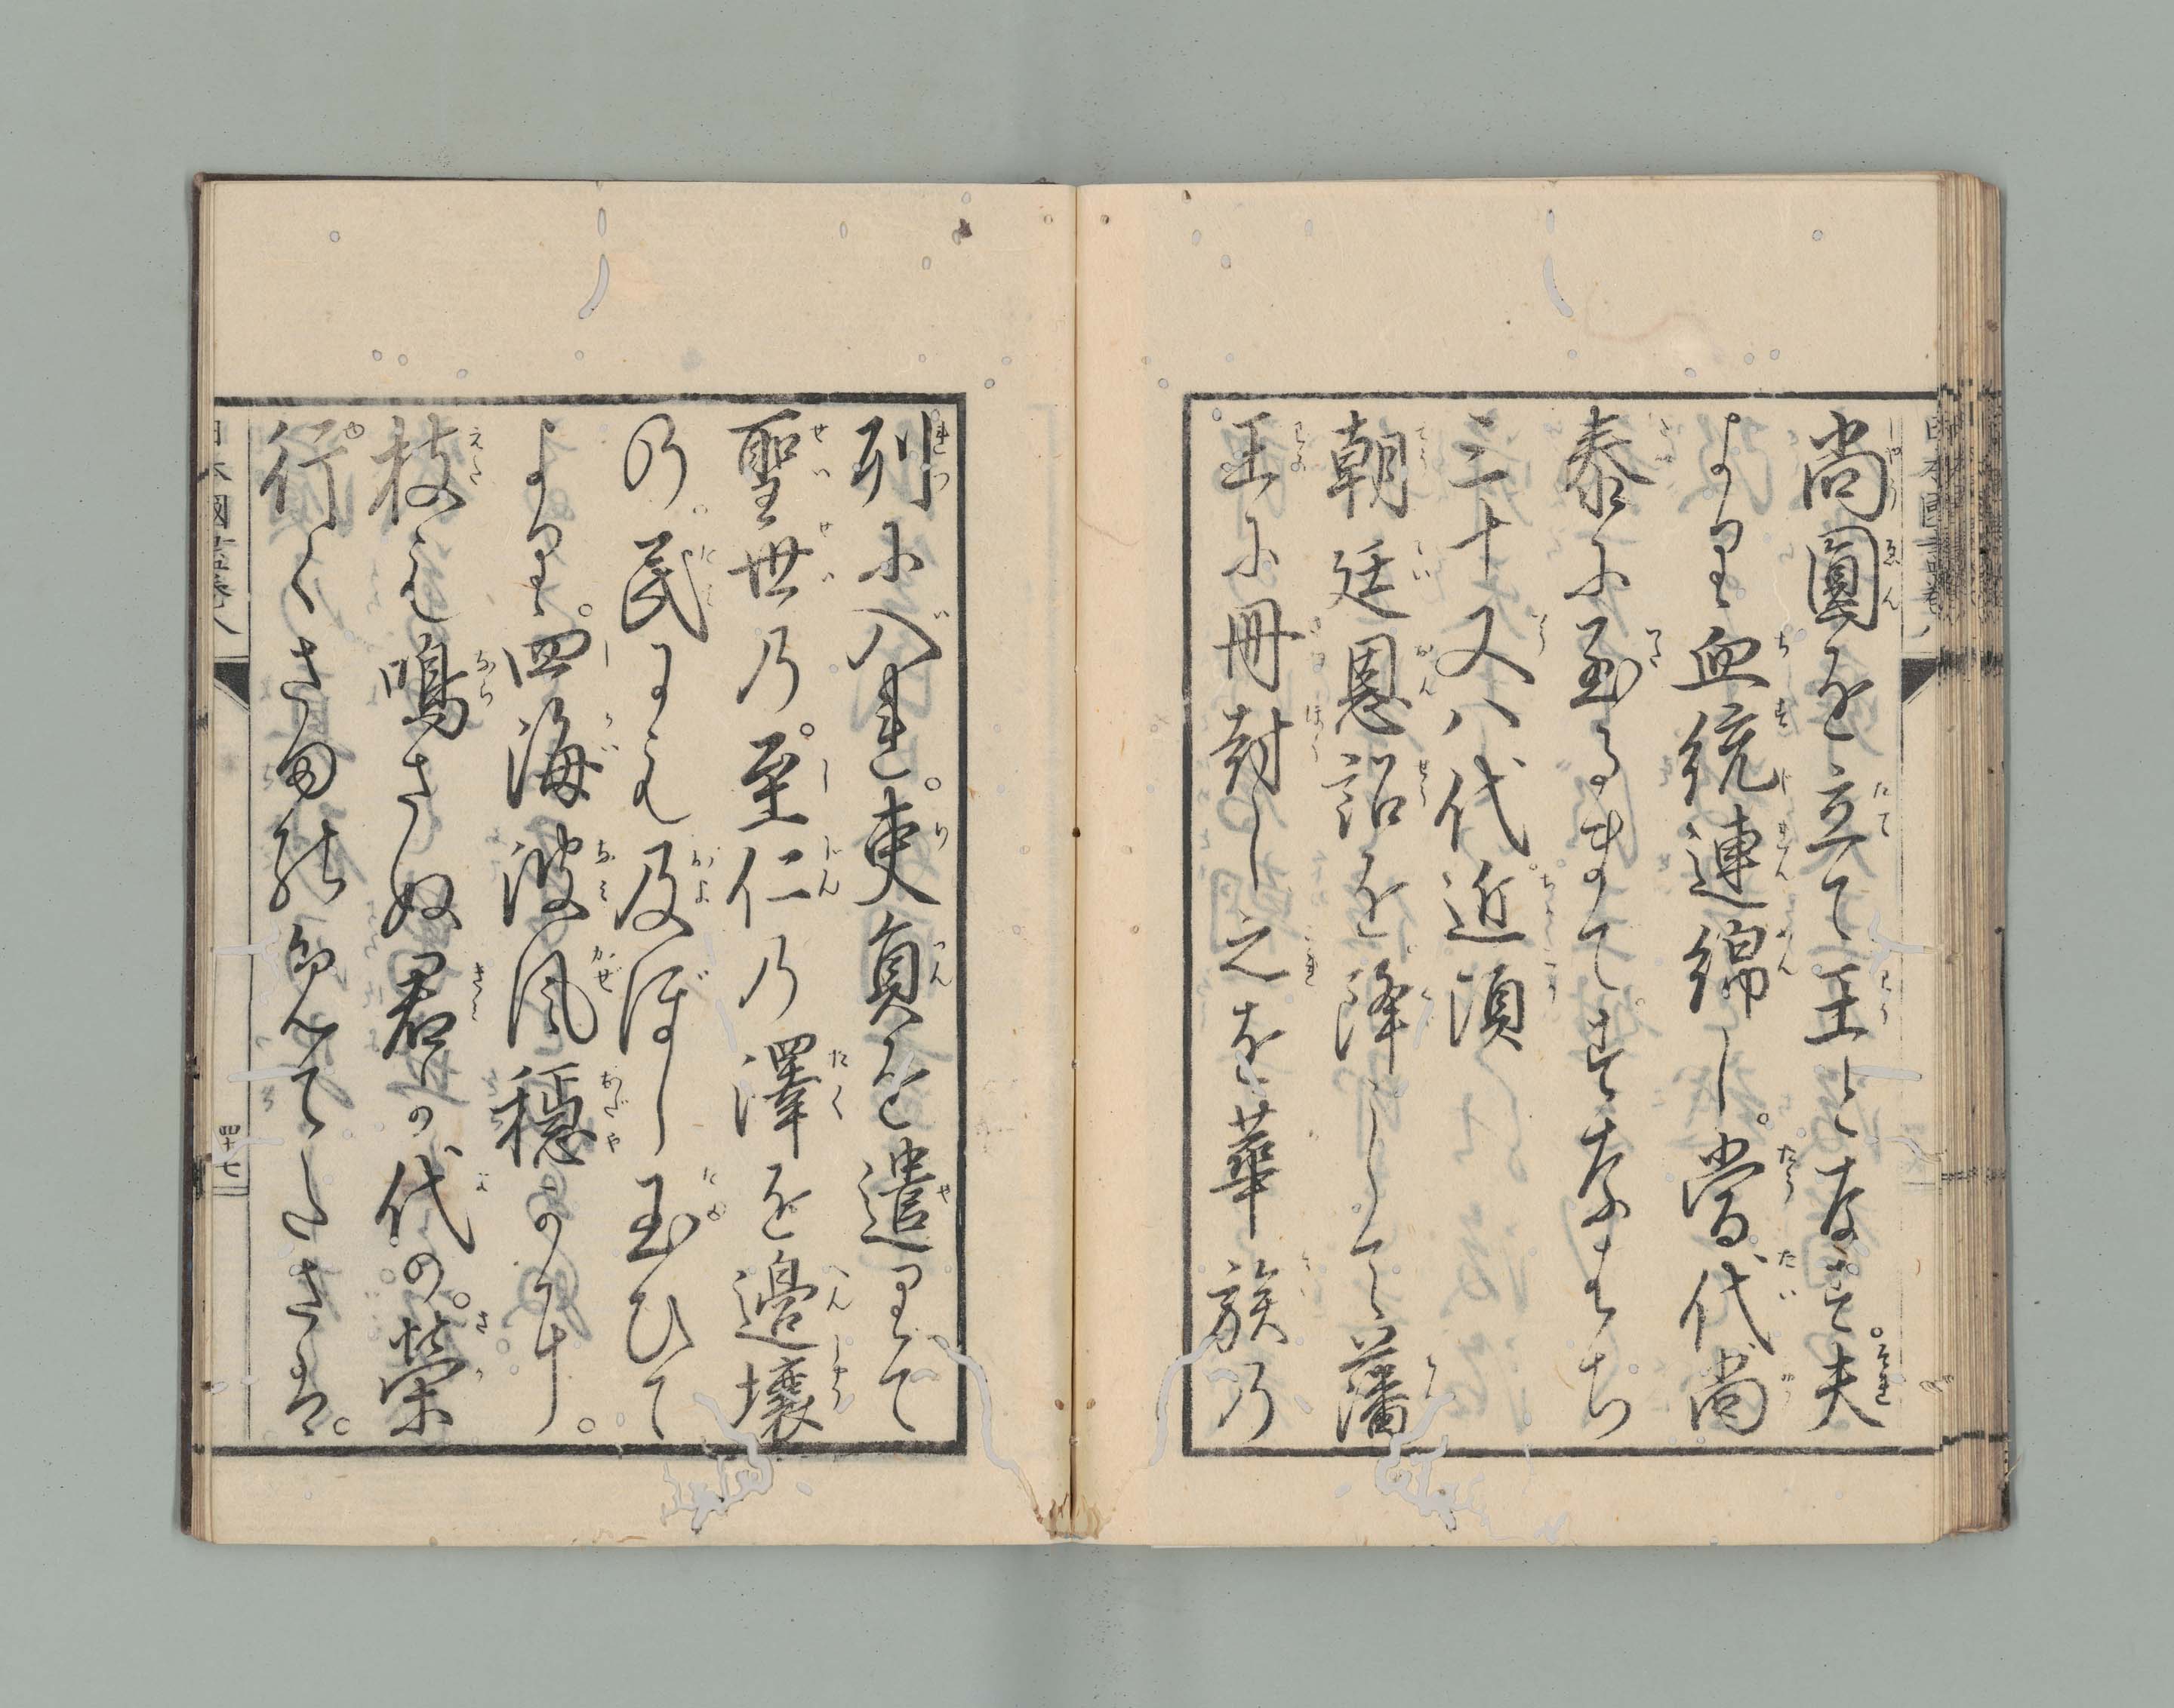 尚圓を立て王となす夫
より血統連綿し當代尚
泰に至るまですなはち
三十又八代近頃
朝廷恩詔を降しして藩
王に冊封し之を華族の
列に入れ吏員を遣りて
聖世の至仁の澤を邊壌
の民にも及ぼし玉ひて
より四海波風穏かにし
枝も鳴さぬ君が代の榮
行くさま
四十七